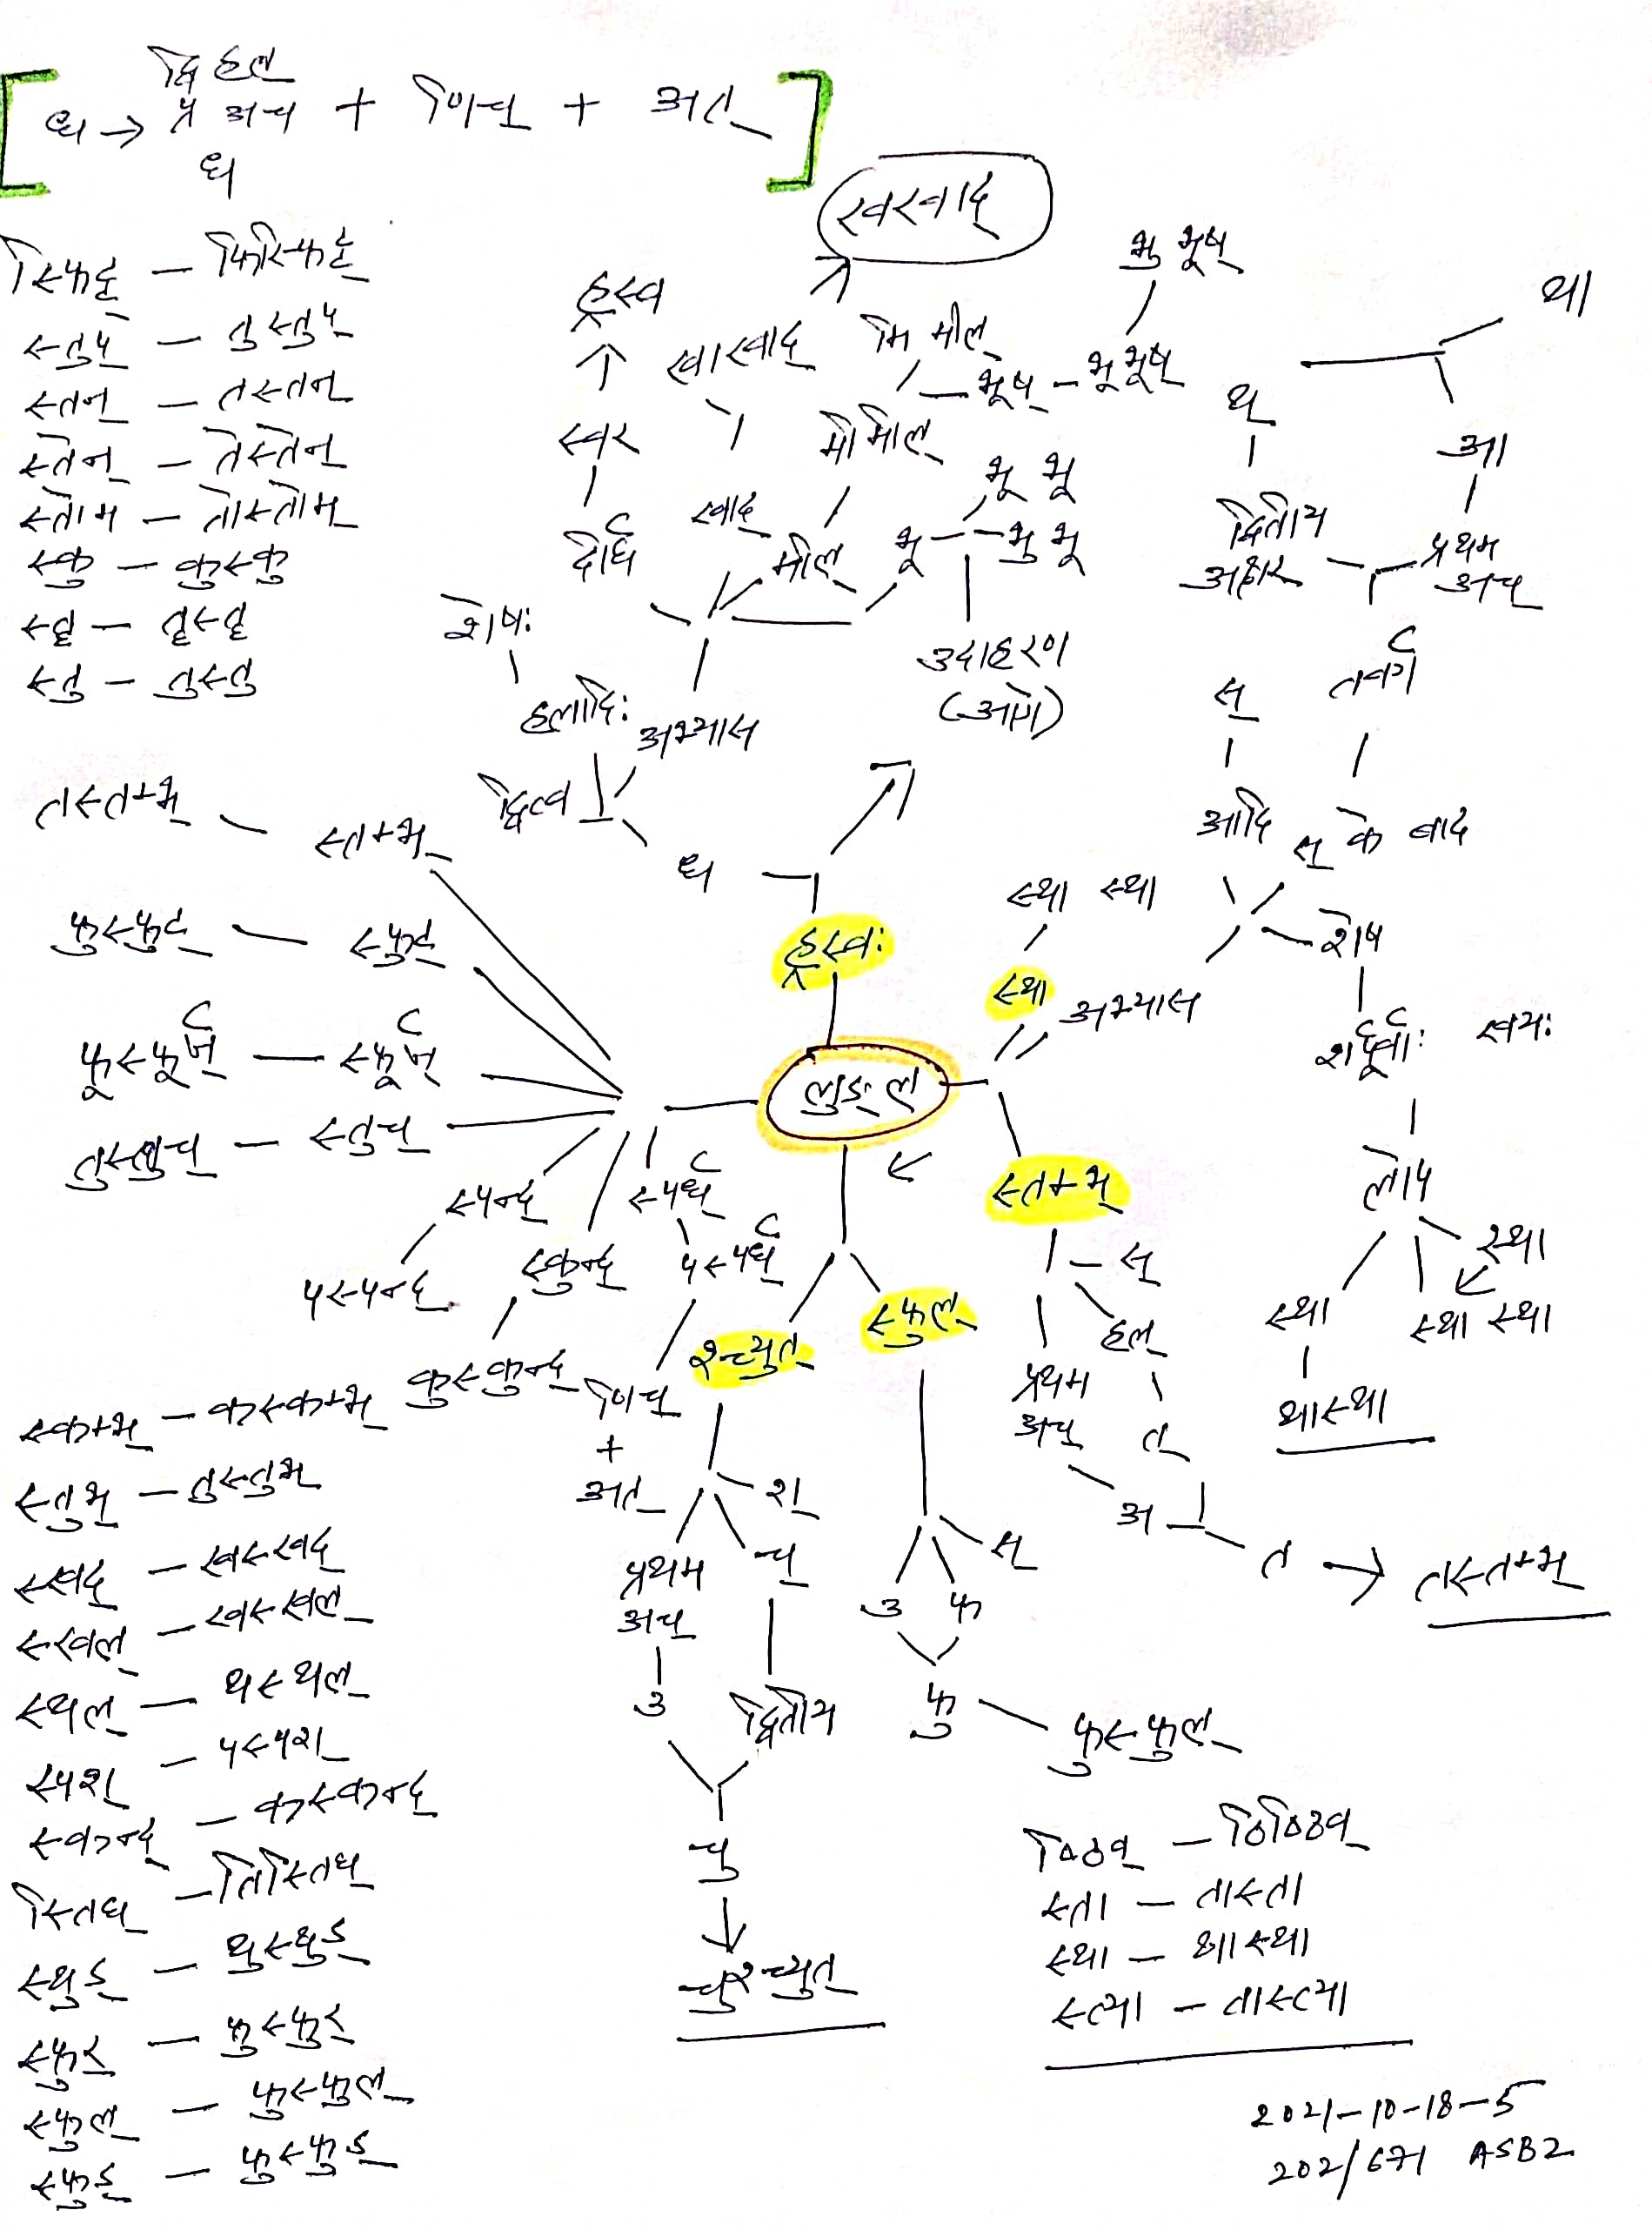 द्वि हल्
धा → प्र अच् + णिच् + अत्
धा
स्फिट् - फिस्फिट्
स्तुप् - तुस्तुप्
स्तन् - तस्तन्
स्तेन् - तेस्तेन्
स्तोम - तोस्तोम्
स्कु - कुस्कु
स्तृ - तृस्तृ
स्तु - तुस्तु
तस्तम्भ् - स्तम्भ्
फुस्फुट् - स्फुट्
फूस्फूर्ज् - स्फूर्ज्
तुस्तुच् - स्तुच्
स्पन्द्
पस्पन्द्
स्पर्ध्
पस्पर्ध्
स्कुन्द्
कुस्कुन्द्
स्कम्भ् - कस्कम्भ्
स्तुभ् - तुस्तुभ्
स्खद् - खस्खद्
स्खल् - खस्खल्
स्थल् - थस्थल्
स्पश् - पस्पश्
स्कन्द् - कस्कन्द्
स्तिघ् - तिस्तिघ्
स्थुड् - थुस्थुड्
स्फुर् - फुस्फुर्
स्फुल् - फुस्फुल्
स्फुड् - फुस्फुड्
स्वस्वाद्
ह्रस्व
स्वास्वाद्
मि मील्
भु भूष्
भूष् - भू भूष्
स्वर
मी मील्
दीर्घ
स्वाद्
मील्
भू
भू भू
भु भू
उदाहरण
(अग्रे)
शेषः
हलादिः
अभ्यास
द्वित्व
धा
ह्रस्वः
लुङ् लृ
था
थ्
आ
द्वितीय
अक्षर
प्रथम
अच्
स्
तवर्ग
आदि
स् के बाद
स्था स्था
स्था
अभ्यास
शेष
शर्पूर्वाः खयः
लोप
स्था
स्था
स्था स्था
थास्था
स्तम्भ्
स्
हल्
प्रथम
अच्
त्
अ
त → तस्तम्भ्
श्च्युत्
स्फुल्
णिच्
+
अत्
श्
प्रथम
अच्
च्
उ
द्वितीय
चु
चुश्च्युत्
स्
उ फ्
फु
फुस्फुल्
ष्ठिव् - ठिष्ठिव्
स्ता - तास्ता
स्था - थास्था
स्त्या - तास्त्या
2021-10-18-5
202/671 ASB2